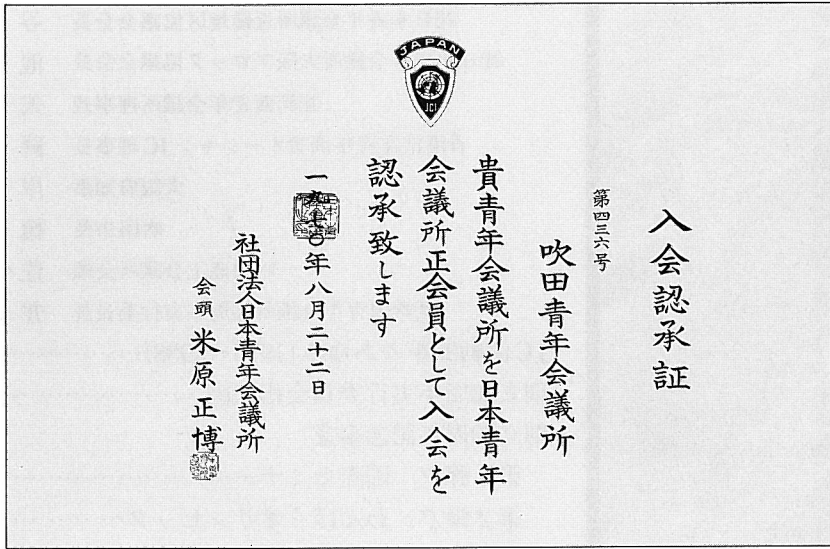 JAPAN
JCI
入会認承証
第四三六号
吹田青年会議所
貴青年会議所を日本青年
会議所正会員として入会を
認承致します
一九七〇年八月二十二日
社団法人日本青年会議所
会頭 米原正博